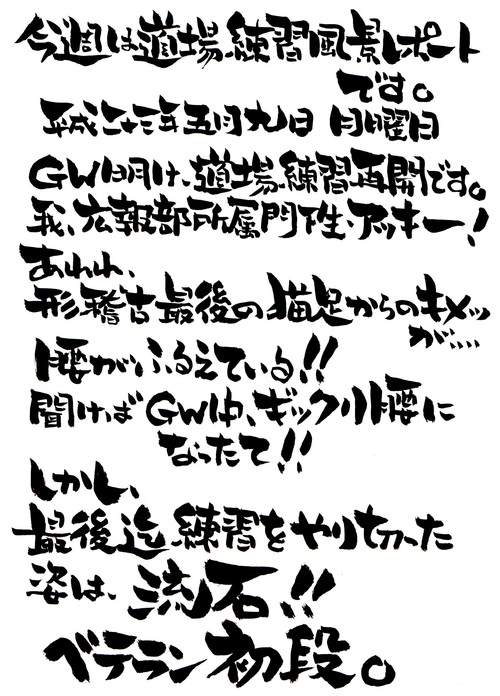 今週は道場練習風景レポート
です。
平成二十三年五月九日 月曜日
GW明け、道場練習再開です。
我、広報部所属門下生、アッキー!
あれれ、
形稽古最後の猫足からのキメッ
が…
腰がふるえている!!
聞けばGW中、ギックリ腰に
なったて!!
しかし、
最後迄練習をやり切った
姿は、流石!!
ベテラン初段。